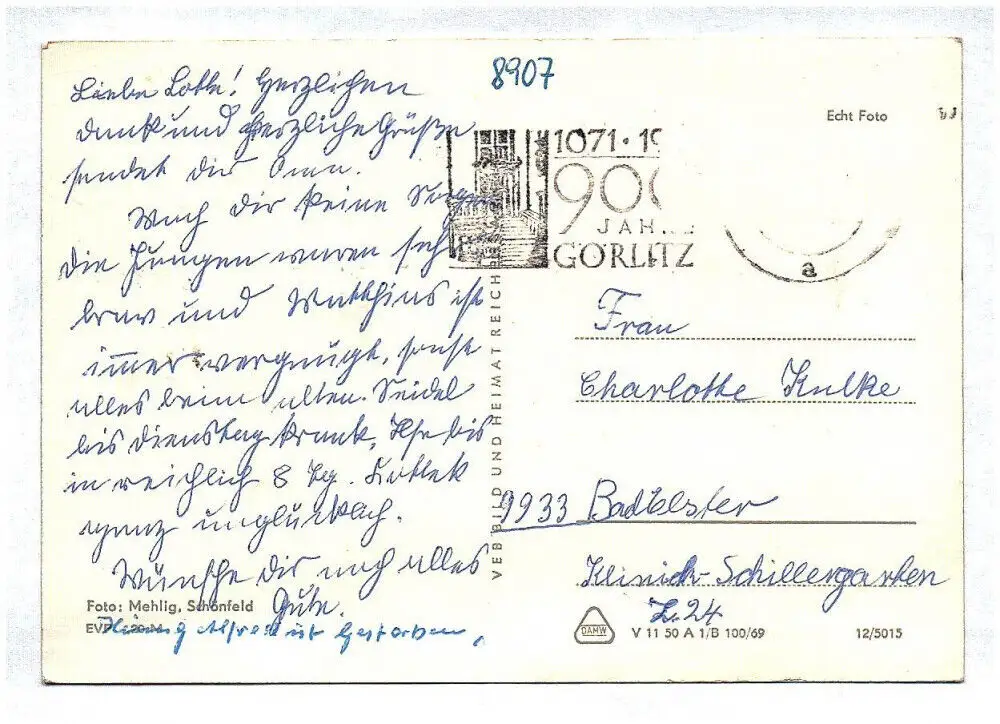 8907
Liebe Lotte! Herzlichen
Dank und herzliche Grüße
sendet dir Oma.
Mach dir keine Sorgen
die Jungen waren sehr
brav und Matthias ist
immer vergnügt, sonst
alles beim alten. Seidel
bis Dienstag krank,
in reichlich 8 Tg.
ganz unglücklich.
Wünsche dir noch alles
Gute.
Alfred ist gestorben,
Foto: Mehlig, Schönfeld
VEB BILD UND HEIMAT REICH
Echt Foto
1071 · 19
900
JAH
GÖRLITZ
a
Frau
Charlotte Kulke
9933 Bad Elster
Klinick-Schillergarten
Z. 24
DAMW
V 11 50 A 1/B 100/69
12/5015